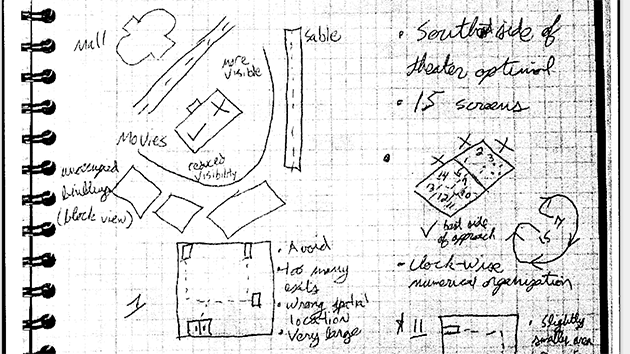 Mall
Sable
more
visible
Movies
reduced
visibility
unoccupied
buildings
(block view)
• Southside of
theater optimal
• 15 screens
X
X
✓ best side
of approach
- Clock-wise
numerical organization
1
• Avoid
• too many
exits
• wrong
location
• Very large
11
• Slightly